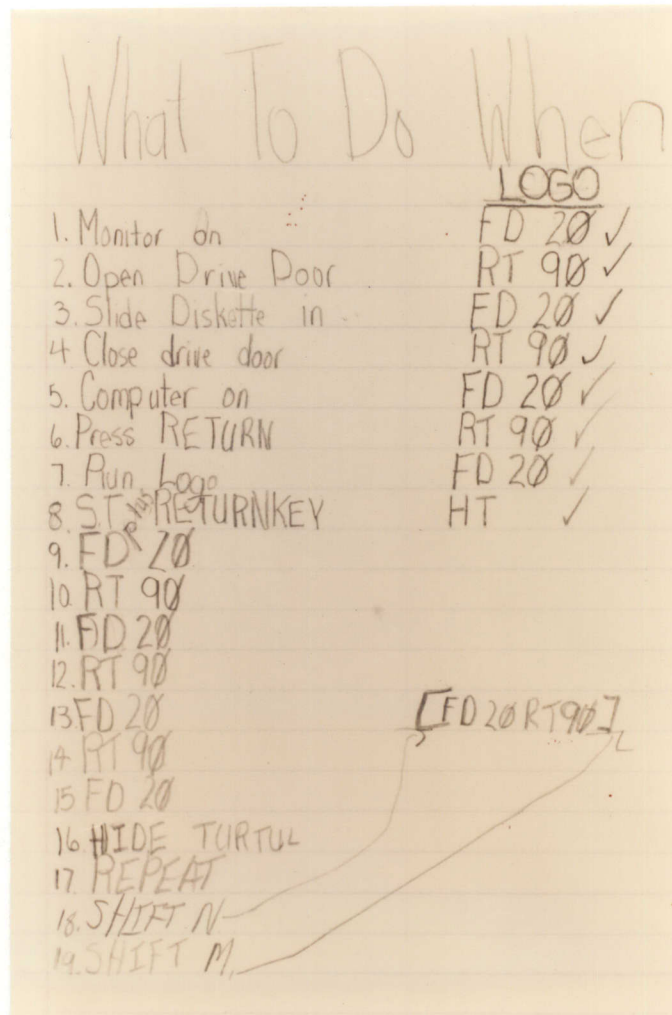 What To Do When
LOGO
1. Monitor on
2. Open Drive Door
3. Slide Diskette in
4 Close drive door
5. Computer on
6. Press RETURN
7. Run Logo
8. ST plus RETURNKEY
9. FD 20
10. RT 90
11. FD 20
12. RT 90
13 FD 20
14 RT 90
15 FD 20
16. HIDE TURTUL
17. REPEAT
18. SHIFT N
19. SHIFT M
FD 20 ✓
RT 90 ✓
FD 20 ✓
RT 90 ✓
FD 20 ✓
RT 90 ✓
FD 20 ✓
HT ✓
[FD 20 RT 90]